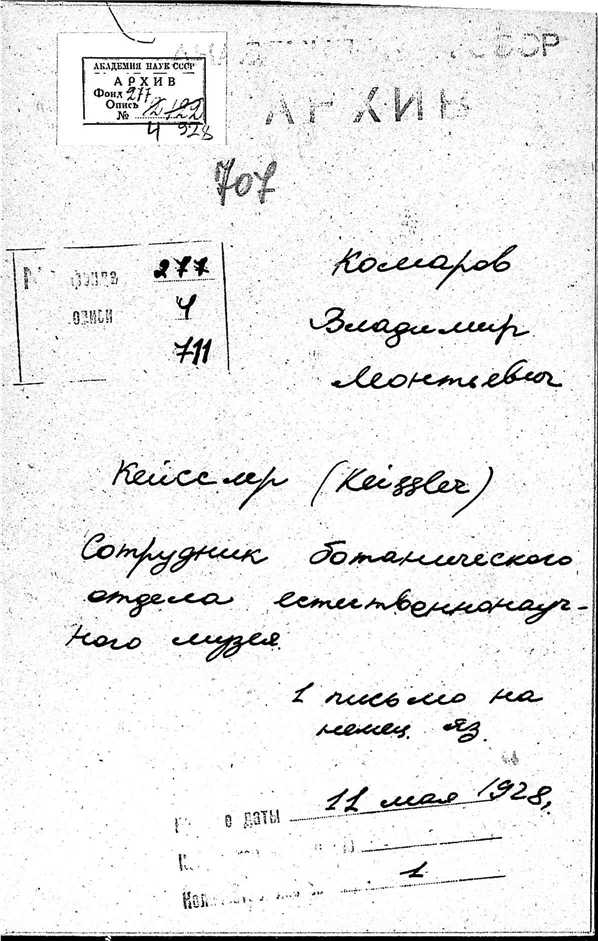 АКАДЕМИЯ НАУК СССР
АРХИВ
Фонд 277
Опись
№ 2122
4 928
АРХИВ
707
фонда 277
описи 4
711
Комаров
Владимир
Леонтьевич
Кейсслер (Keizzler)
Сотрудник ботанического
отдела естественнонауч-
ного музея.
1 письмо на
немец. яз.
даты 11 мая 1928,
1